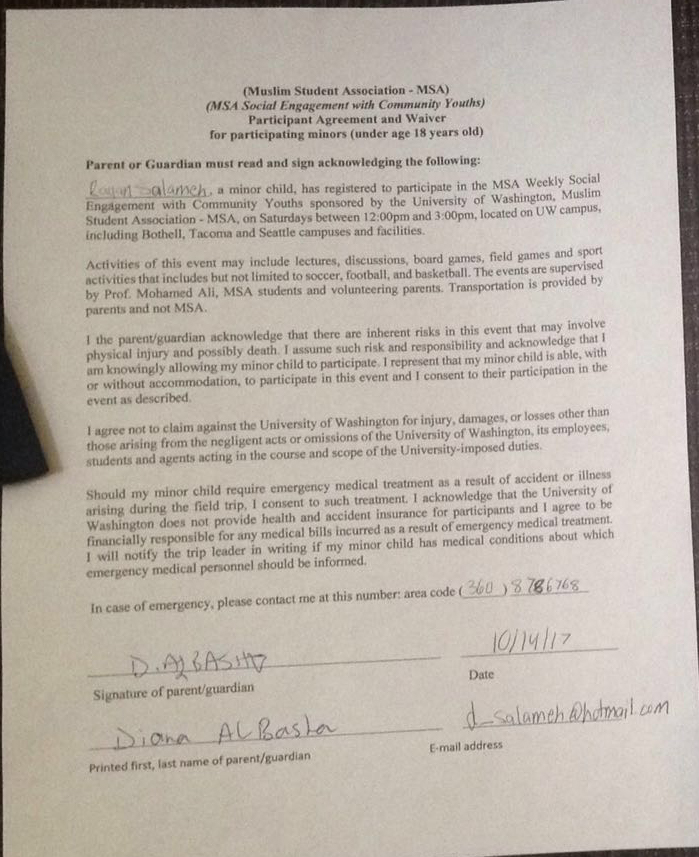 (Muslim Student Association - MSA)
(MSA Social Engagement with Community Youths)
Participant Agreement and Waiver
for participating minors (under age 18 years old)
Parent or Guardian must read and sign acknowledging the following:
Salameh, a minor child, has registered to participate in the MSA Weekly Social
Engagement with Community Youths sponsored by the University of Washington, Muslim
Student Association - MSA, on Saturdays between 12:00pm and 3:00pm, located on UW campus,
including Bothell, Tacoma and Seattle campuses and facilities.
Activities of this event may include lectures, discussions, board games, field games and sport
activities that includes but not limited to soccer, football, and basketball. The events are supervised
by Prof. Mohamed Ali, MSA students and volunteering parents. Transportation is provided by
parents and not MSA.
I the parent/guardian acknowledge that there are inherent risks in this event that may involve
physical injury and possibly death. I assume such risk and responsibility and acknowledge that I
am knowingly allowing my minor child to participate. I represent that my minor child is able, with
or without accommodation, to participate in this event and I consent to their participation in the
event as described.
I agree not to claim against the University of Washington for injury, damages, or losses other than
those arising from the negligent acts or omissions of the University of Washington, its employees,
students and agents acting in the course and scope of the University-imposed duties.
Should my minor child require emergency medical treatment as a result of accident or illness
arising during the field trip, I consent to such treatment. I acknowledge that the University of
Washington does not provide health and accident insurance for participants and I agree to be
financially responsible for any medical bills incurred as a result of emergency medical treatment.
I will notify the trip leader in writing if my minor child has medical conditions about which
emergency medical personnel should be informed.
In case of emergency, please contact me at this number: area code (360)
D. ALBASHA 10/14/17
Signature of parent/guardian Date
Diana AL Basha d_salameh@hotmail.com
Printed first, last name of parent/guardian E-mail address